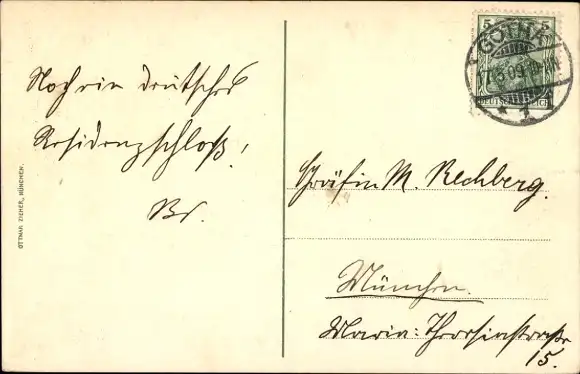 Noch ein deutsches
Residenzschloß!
Br.
OTTMAR ZIEHER, MÜNCHEN.
5 5
GOTHA
17.5.09.
1
DEUTSCHES REICH
Gräfin M. Rechberg.
München.
Maria-Theresiastraße
15.